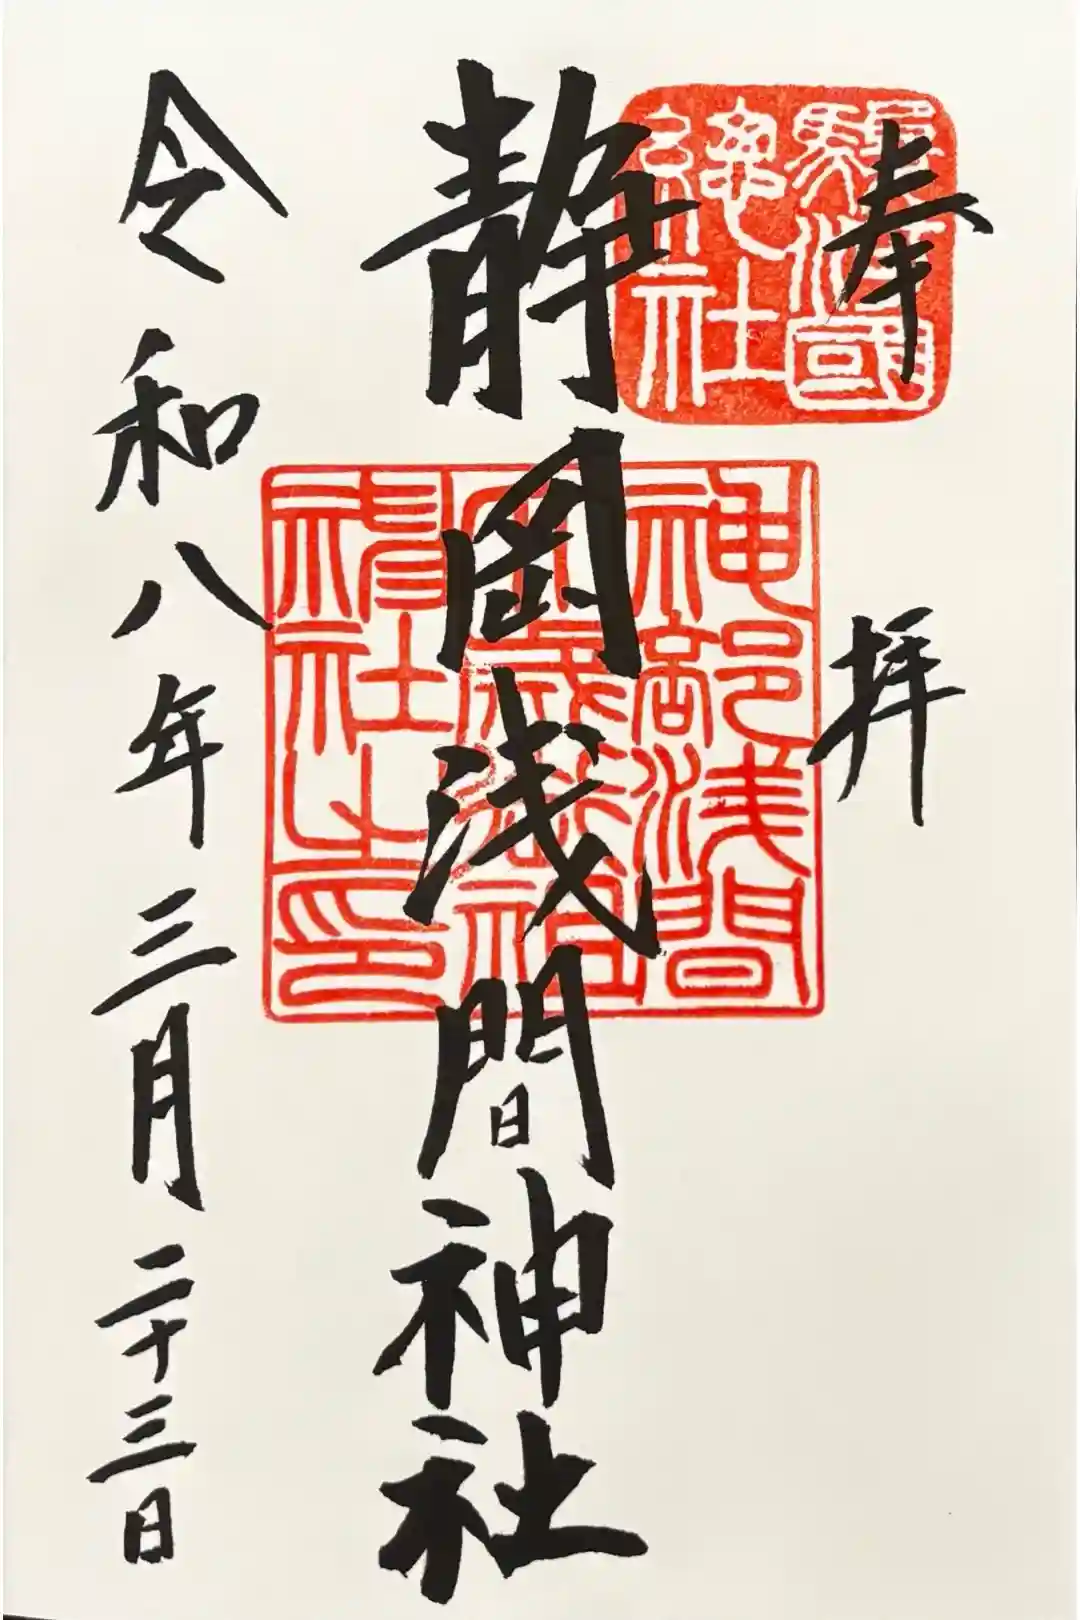 奉拝
駿河國
總社
静岡浅間神社
神部淺間
大歳御祖
神社之印
令和八年三月二十三日